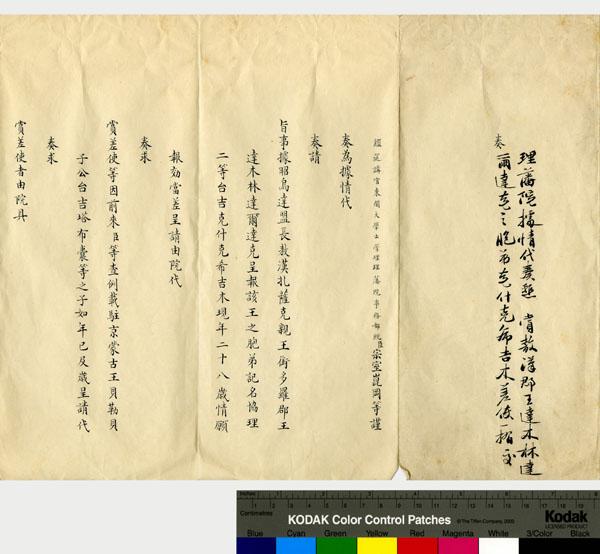 理藩院據情代奏懇 賞敖漢郡王達木林達
爾達克之胞弟克什克希吉木差使一摺 交
奏
經筵講官東閣大學士管理理藩院事務都統臣宗室崑岡等謹
奏為據情代
奏請
旨事據昭烏達盟長敖漢扎薩克親王銜多羅郡王
達木林達爾達克呈報該王之胞弟記名協理
二等台吉克什克希吉木現年二十八歲情願
報効當差呈請由院代
奏求
賞差使等因前來臣等查例載駐京蒙古王貝勒貝
子公台吉塔布囊等之子如年已及歲呈請代
奏求
賞差使者由院具
Inches 1 2 3 4 5 6 7 8
Centimetres 1 2 3 4 5 6 7 8 9 10 11 12 13 14 15 16 17 18 19
KODAK Color Control Patches
© The Tiffen Company, 2000
Kodak
LICENSED PRODUCT
Blue Cyan Green Yellow Red Magenta White 3/Color Black